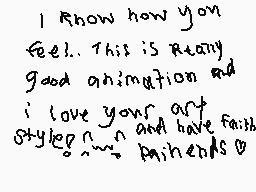 I know how you
feel.. This is Really
good animation and
i love your art
style n n and have faith
painends